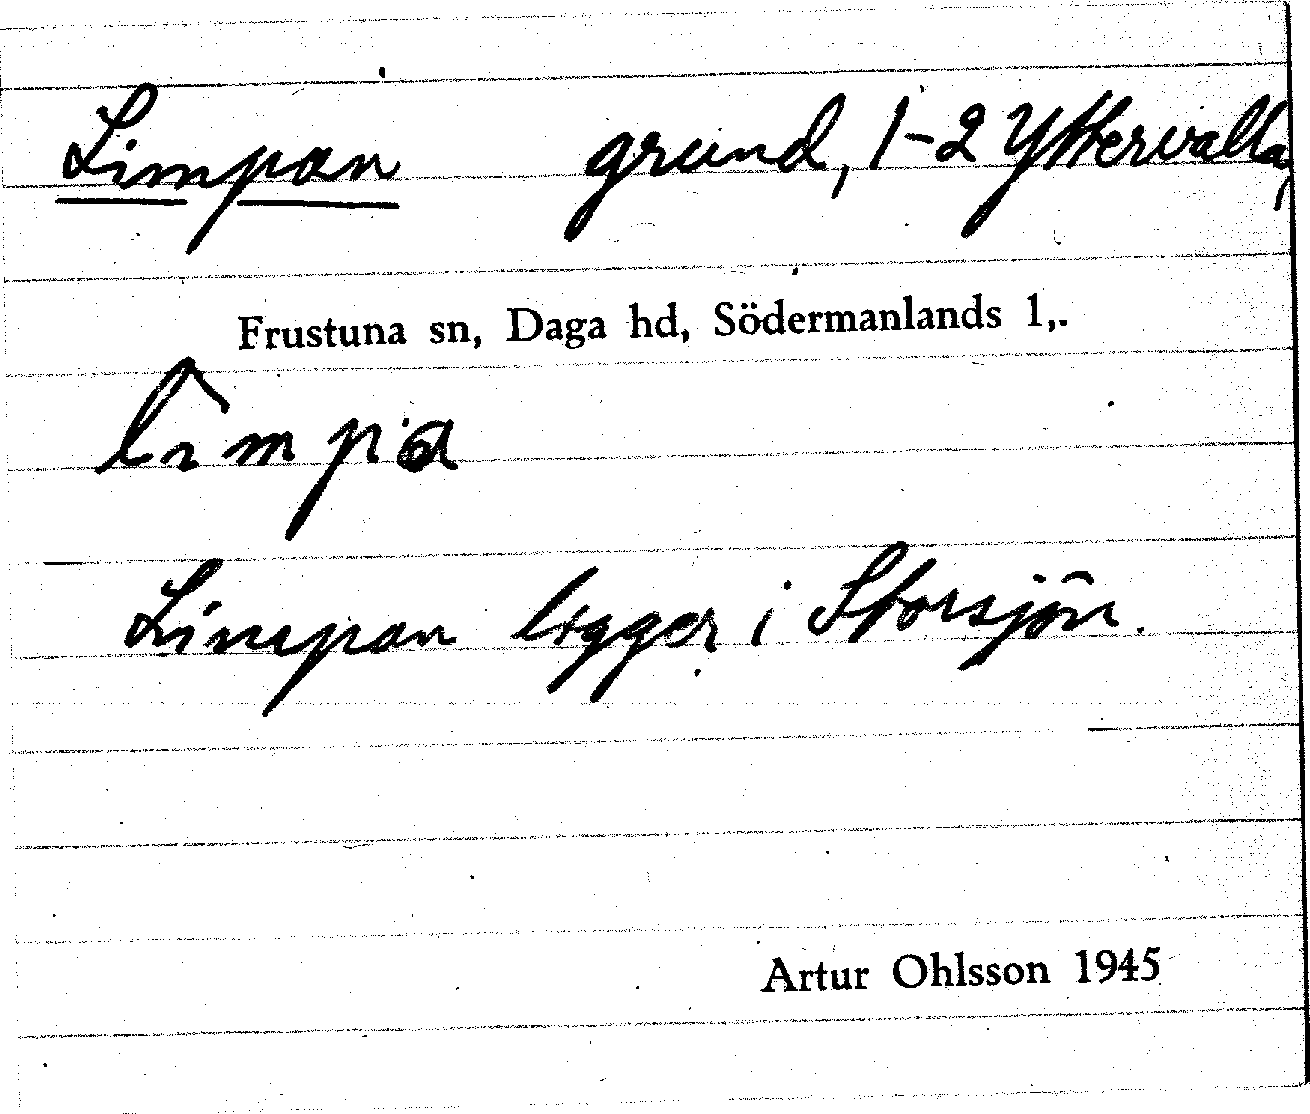 Limpan grund, 1-2 Yttervalla,
Frustuna sn, Daga hd, Södermanlands l,.
Limpan ligger i Storsjön.
Artur Ohlsson 1945